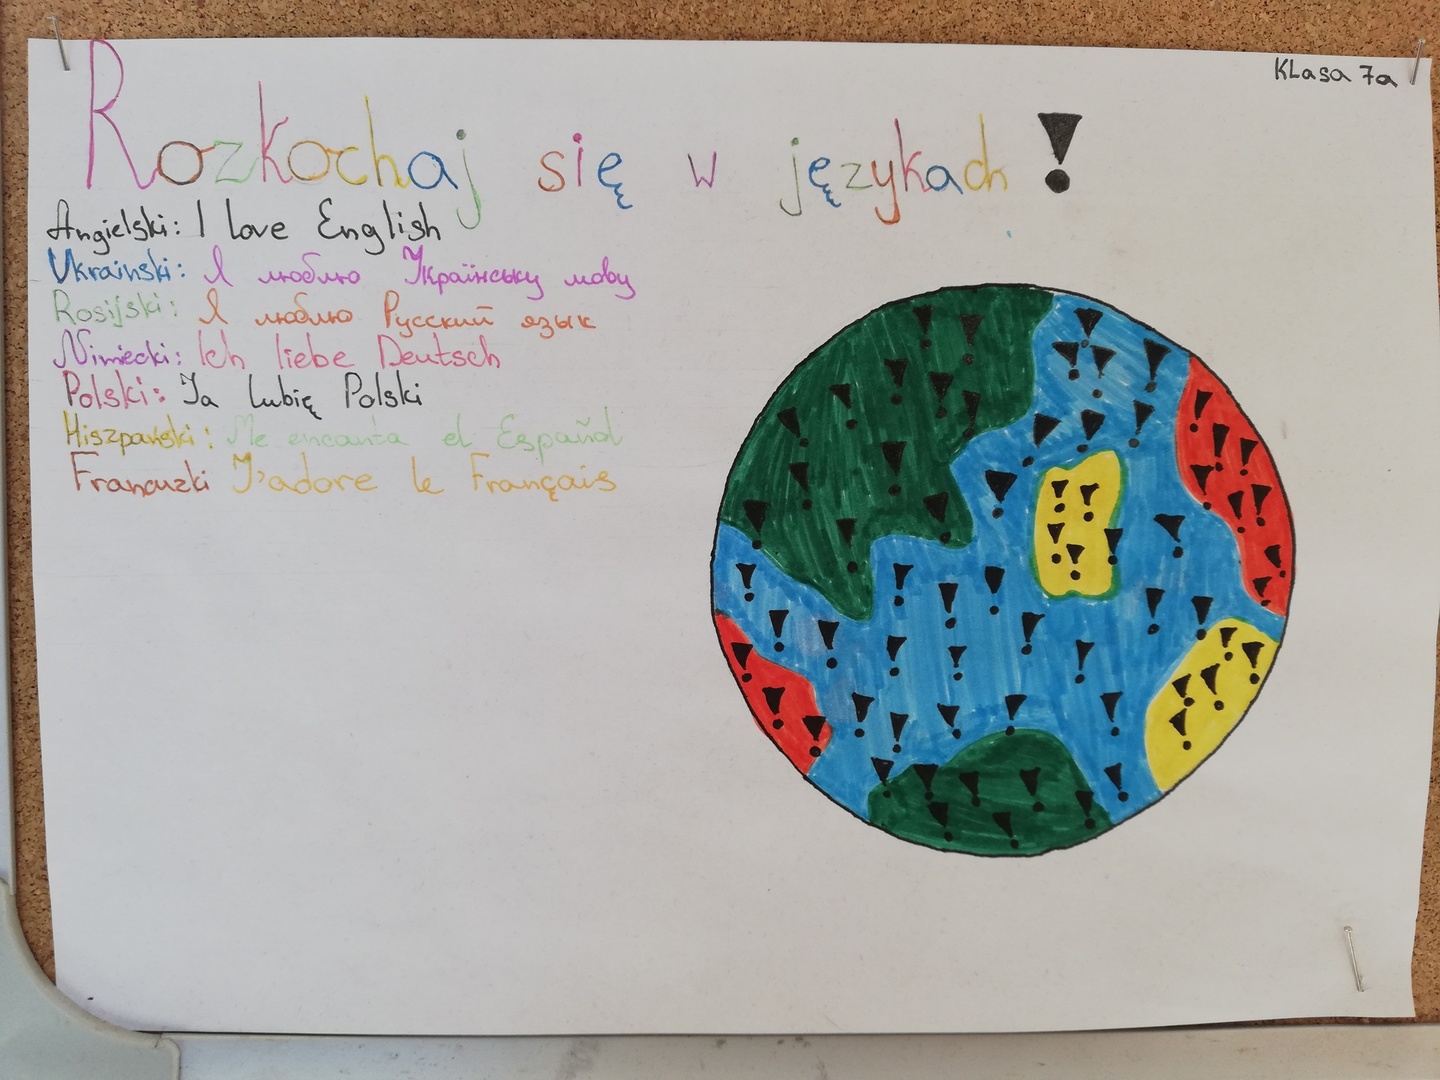 Klasa 7a
Rozkochaj się w językach!
Angielski: I love English
Ukrainski: Я люблю Українську мову
Rosijski: Я люблю Русский язык
Nimiecki: Ich liebe Deutsch
Polski: Ja lubię Polski
Hiszpański: Me encanta el Español
Francuzki J'adore le Français